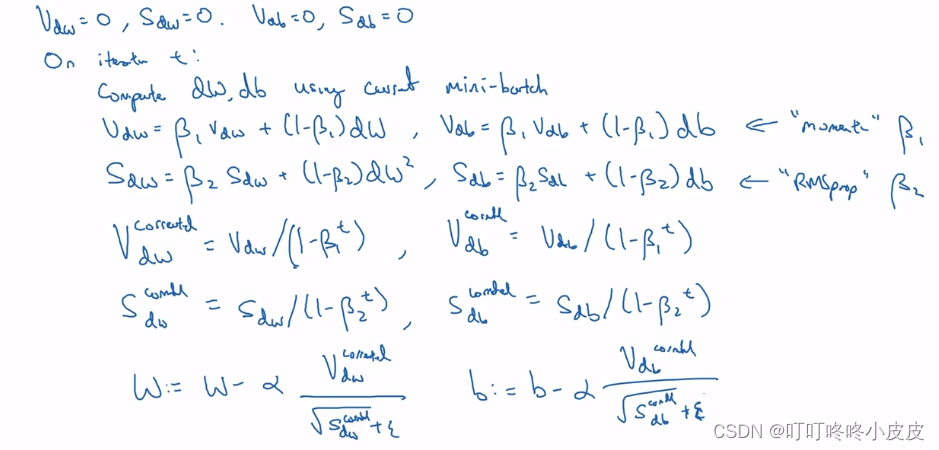 V_dw = 0, S_dw = 0. V_db = 0, S_db = 0
On iteration t:
Compute dW, db using current mini-batch
V_dw = β₁ V_dw + (1-β₁) dW , V_db = β₁ V_db + (1-β₁) db ← "moment" β₁
S_dw = β₂ S_dw + (1-β₂) dW² , S_db = β₂ S_db + (1-β₂) db ← "RMSprop" β₂
V_dw^corrected = V_dw / (1-β₁^t) , V_db^corrected = V_db / (1-β₁^t)
S_dw^corrected = S_dw / (1-β₂^t) , S_db^corrected = S_db / (1-β₂^t)
W := W - α V_dw^corrected / (√S_dw^corrected + ε) b := b - α V_db^corrected / (√S_db^corrected + ε)
CSDN @叮叮咚咚小皮皮